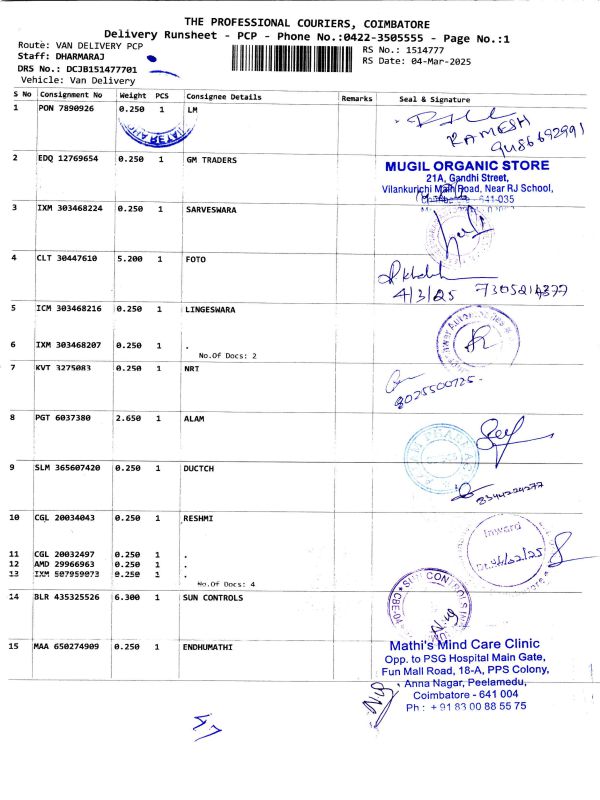 THE PROFESSIONAL COURIERS, COIMBATORE
Delivery Runsheet - PCP - Phone No.:0422-3505555 - Page No.:1
Route: VAN DELIVERY PCP
RS No.: 1514777
Staff: DHARMARAJ
RS Date: 04-Mar-2025
DRS No.: DCJB151477701
Vehicle: Van Delivery
S No Consignment No Weight PCS Consignee Details Remarks Seal & Signature
1 PON 7890926 0.250 1 LM
RAMESH
9486692991
2 EDQ 12769654 0.250 1 GM TRADERS
MUGIL ORGANIC STORE
21A, Gandhi Street,
Vilankurichi Main Road, Near RJ School,
641-035
3 IXM 303468224 0.250 1 SARVESWARA
4 CLT 30447610 5.200 1 FOTO
4/3/25
5 ICM 303468216 0.250 1 LINGESWARA
6 IXM 303468207 0.250 1 .
No.Of Docs: 2
7 KVT 3275083 0.250 1 NRT
8 PGT 6037380 2.650 1 ALAM
9 SLM 365607420 0.250 1 DUCTCH
10 CGL 20034043 0.250 1 RESHMI
Inward
11 CGL 20032497 0.250 1 .
12 AMD 29966963 0.250 1 .
13 IXM 507959073 0.250 1 .
No.Of Docs: 4
14 BLR 435325526 6.300 1 SUN CONTROLS
SUN CONTROLS
15 MAA 650274909 0.250 1 ENDHUMATHI
Mathi's Mind Care Clinic
Opp. to PSG Hospital Main Gate,
Fun Mall Road, 18-A, PPS Colony,
Anna Nagar, Peelamedu,
Coimbatore - 641 004
Ph : + 91 83 00 88 55 75